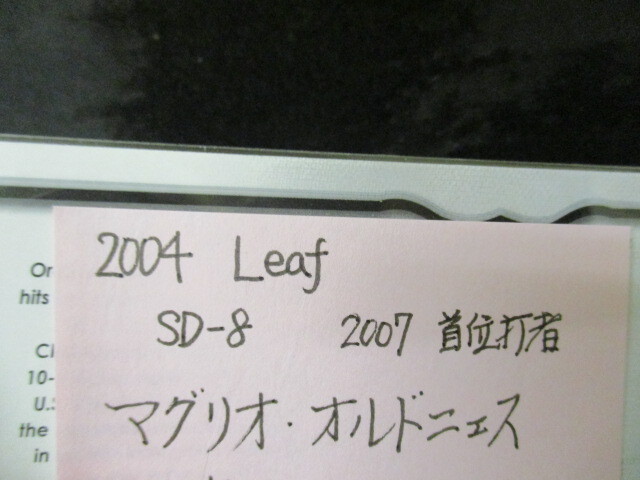 2004 Leaf
SD-8 2007 首位打者
マグリオ・オルドニェス
Or
hits
10-
U.S
the
in